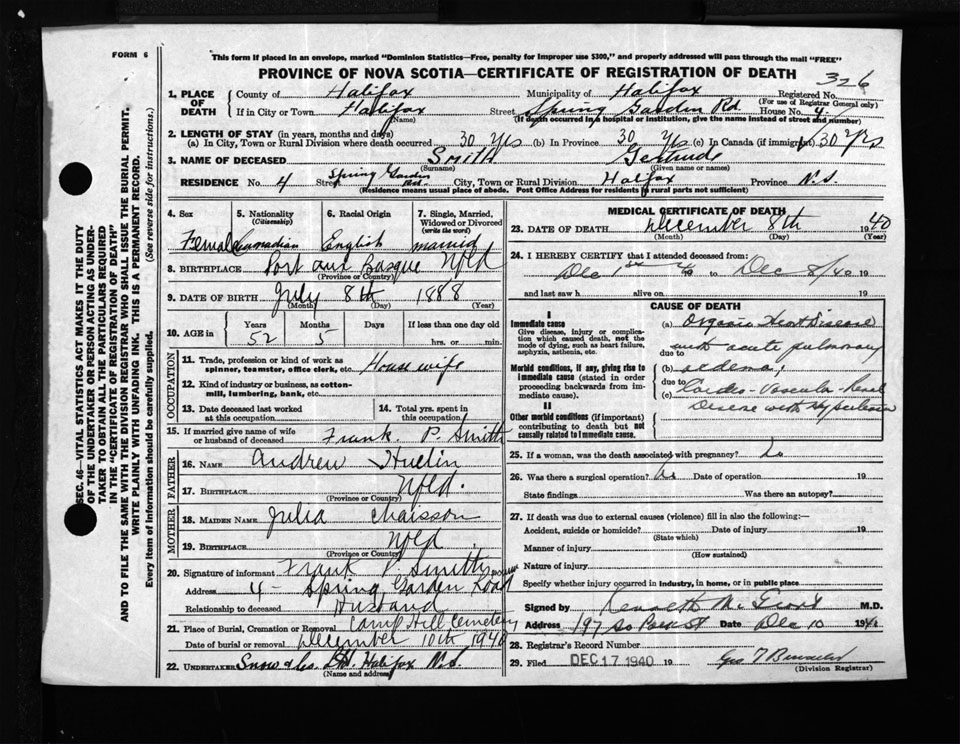 FORM 6
This form if placed in an envelope, marked "Dominion Statistics—Free, penalty for improper use $300," and properly addressed will pass through the mail "FREE"
PROVINCE OF NOVA SCOTIA—CERTIFICATE OF REGISTRATION OF DEATH
326
1. PLACE OF DEATH
County of Halifax Municipality of Halifax Registered No.
(For use of Registrar General only)
If in City or Town Halifax Street Spring Garden Rd House No. 4
(Name) (If death occurred in a hospital or institution, give the name instead of street and number)
2. LENGTH OF STAY (in years, months and days)
(a) In City, Town or Rural Division where death occurred 30 Yrs (b) In Province 30 Yrs (c) In Canada (if immigrant) 30 Yrs
3. NAME OF DECEASED Smith Gertrude
(Surname) (Given name or names)
RESIDENCE No. 4 Street Spring Garden Rd. City, Town or Rural Division Halifax Province N.S.
(Residence means usual place of abode. Post Office Address for residents in rural parts not sufficient)
4. Sex 5. Nationality (Citizenship) 6. Racial Origin 7. Single, Married, Widowed or Divorced (write the word)
Female Canadian English married
8. BIRTHPLACE Port aux Basque Nfld
(Province or Country)
9. DATE OF BIRTH July 8th 1888
(Month) (Day) (Year)
10. AGE in Years Months Days If less than one day old
52 5 hrs. or min.
OCCUPATION
11. Trade, profession or kind of work as spinner, teamster, office clerk, etc. House wife
12. Kind of industry or business, as cotton-mill, lumbering, bank, etc.
13. Date deceased last worked at this occupation 14. Total yrs. spent in this occupation
15. If married give name of wife or husband of deceased Frank P. Smith
FATHER
16. NAME Andrew Huelin
17. BIRTHPLACE Nfld.
(Province or Country)
MOTHER
18. MAIDEN NAME Julia Chaisson
19. BIRTHPLACE Nfld.
(Province or Country)
20. Signature of informant Frank P. Smith
Address 4 - Spring Garden Road
Relationship to deceased Husband
21. Place of Burial, Cremation or Removal Camp Hill Cemetery
Date of burial or removal December 10th 1940
22. UNDERTAKER Snow & Co. Ltd. Halifax N.S.
(Name and address)
MEDICAL CERTIFICATE OF DEATH
23. DATE OF DEATH December 8th 1940
(Month) (Day) (Year)
24. I HEREBY CERTIFY that I attended deceased from:
Dec 1st to Dec 8/40 19
and last saw h alive on 19
CAUSE OF DEATH
I
Immediate cause
Give disease, injury or complication which caused death, not the mode of dying, such as heart failure, asphyxia, asthenia, etc.
(a) Organic Heart Disease
with acute pulmonary
due to
Morbid conditions, if any, giving rise to immediate cause (stated in order proceeding backwards from immediate cause).
(b) oedema;
due to
(c) Cardio-Vascular-Renal
Disease with
II
Other morbid conditions (if important) contributing to death but not causally related to immediate cause.
25. If a woman, was the death associated with pregnancy? No
26. Was there a surgical operation? No Date of operation 19
State findings Was there an autopsy?
27. If death was due to external causes (violence) fill in also the following:—
Accident, suicide or homicide? Date of injury 19
(State which)
Manner of injury
(How sustained)
Nature of injury
Specify whether injury occurred in industry, in home, or in public place
Signed by Kenneth M. M.D.
Address 197 So Park St Date Dec 10 194
28. Registrar's Record Number
29. Filed DEC 17 1940 19
(Division Registrar)
SEC. 46—VITAL STATISTICS ACT MAKES IT THE DUTY
OF THE UNDERTAKER OR PERSON ACTING AS UNDER-
TAKER TO OBTAIN ALL THE PARTICULARS REQUIRED
IN THE "CERTIFICATE OF REGISTRATION OF DEATH"
AND TO FILE THE SAME WITH THE DIVISION REGISTRAR WHO SHALL ISSUE THE BURIAL PERMIT.
WRITE PLAINLY WITH UNFADING INK. THIS IS A PERMANENT RECORD.
Every item of information should be carefully supplied. (See reverse side for instructions.)